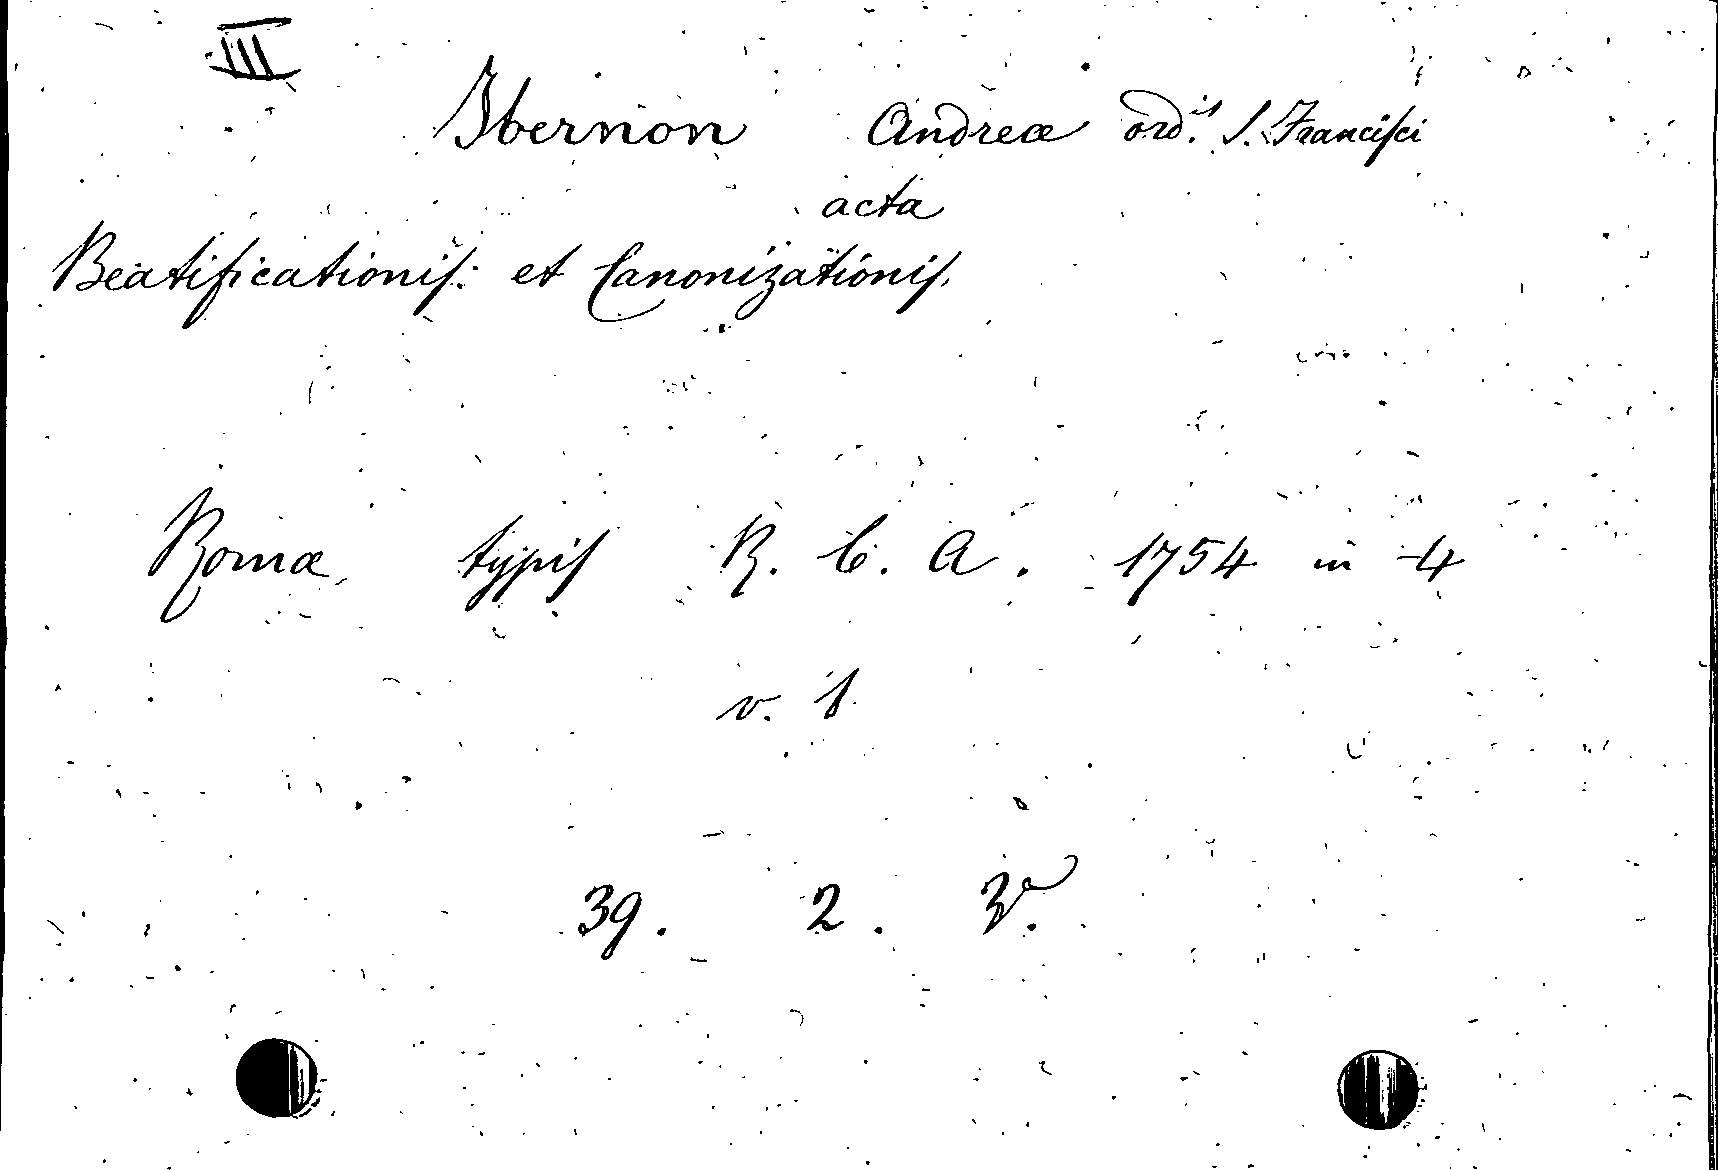 III
Ibernon Andreæ ord.is S. Francisci
acta
Beatificationis: et Canonizationis.
Romæ, typis R. C. A. 1754 in 4
v. 1
39. 2. 3.a